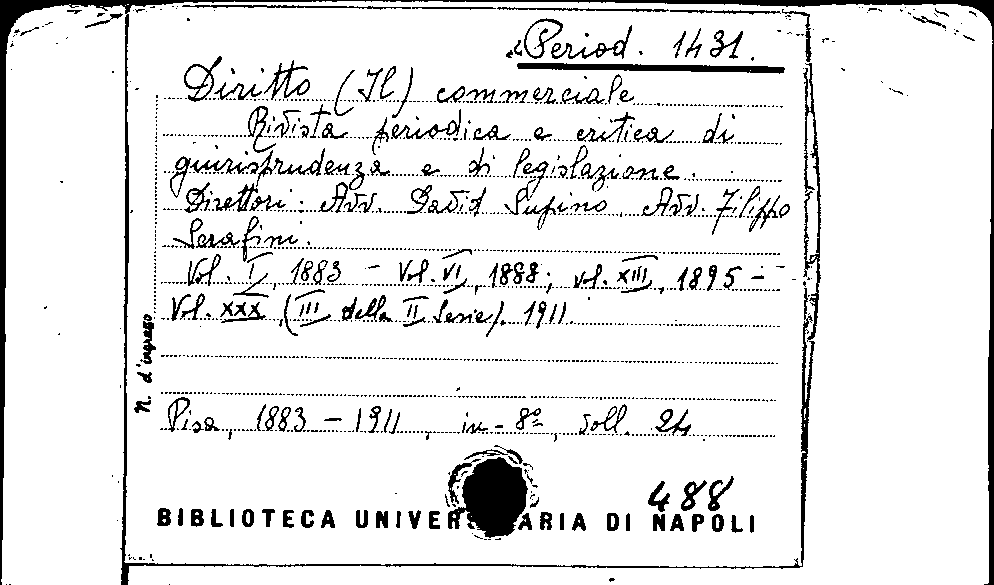 Period. 1431.
Diritto (Il) commerciale
Rivista periodica e critica di
giurisprudenza e di legislazione.
Direttori: Avv. David Supino, Avv. Filippo
Serafini.
Vol. I, 1883 - Vol. VI, 1888; vol. XIII, 1895 -
Vol. XXX, (III della II Serie). 1911.
N. d'ingresso
Pisa, 1883 - 1911, in-8º, voll. 24
488
BIBLIOTECA DI NAPOLI